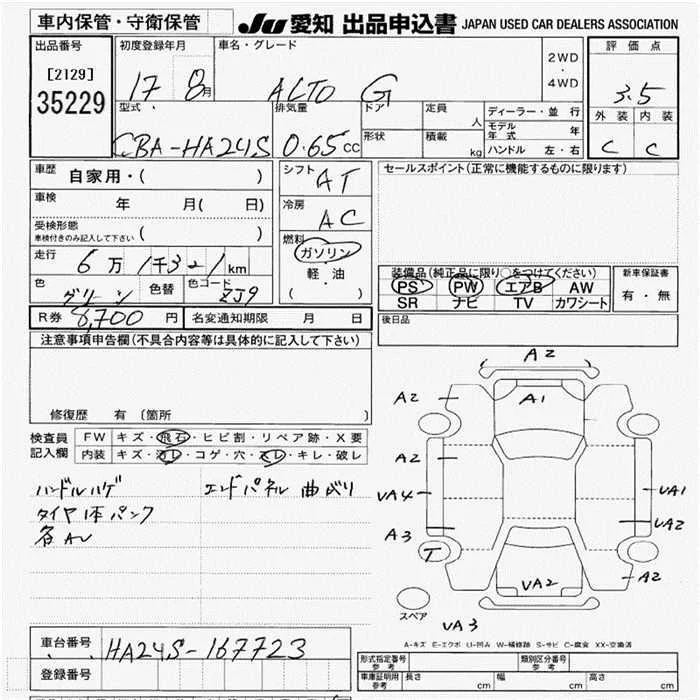 車内保管・守衛保管
JU 愛知 出品申込書 JAPAN USED CAR DEALERS ASSOCIATION
出品番号 初度登録年月 車名・グレード 2WD ・ 4WD 評価点
[2129]
35229 17 8月 ALTO G 3.5
型式 排気量 ドア 定員 人 ディーラー・並行 外装 内装
CBA-HA24S 0.65cc 形状 積載 kg モデル年式 年 C C
ハンドル 左・右
車歴 自家用・( ) シフト AT セールスポイント(正常に機能するものに限ります)
車検 年 月( 日) 冷房 AC
受検形態 ( )
車検付きのみ記入して下さい
燃料 ガソリン
走行 6万1千321km 軽・油
( )
装備品(純正品に限り○をつけてください) 新車保証書
色 グリーン 色替 色コード ZJ9 PS PW エアB AW 有・無
SR ナビ TV カワシート
R券 8,700円 名変通知期限 月 日 後日品
注意事項申告欄(不具合内容等は具体的に記入して下さい)
修復歴 有 〔箇所 〕
検査員 FW キズ・飛石・ヒビ割・リペア跡・X要
記入欄 内装 キズ・汚レ・コゲ・穴・スレ・キレ・破レ
ハンドルハゲ エンドパネル曲がり
タイヤ1本パンク
各AU
A2
A2 A1
A2
VA4 VA1
VA2
A3 T
A2
VA2
スペア VA3
A-キズ E-エクボ U-凹み W-補修跡 S-サビ C-腐食 XX-交換済
車台番号 HA24S-167723
登録番号
形式指定番号 参考 類別区分番号 参考
車庫証明用 参考 長さ cm 幅 cm 高さ cm